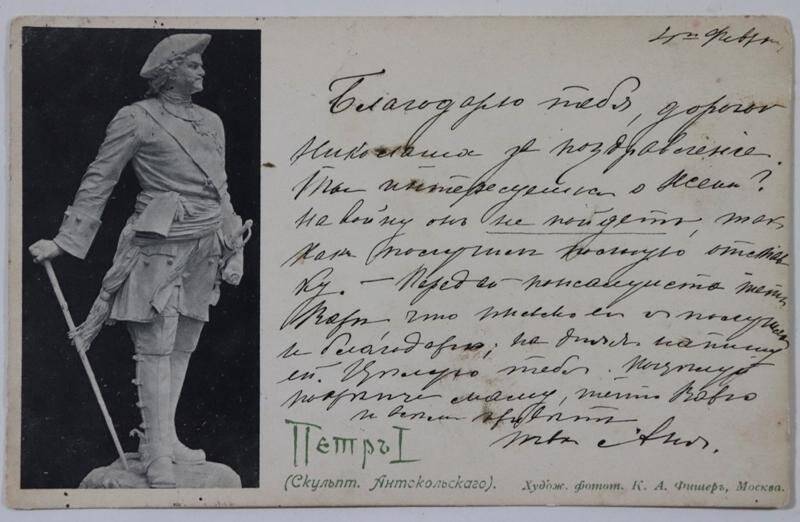 4го Февр
Благодарю тебя, дорогой
Николаша за поздравленіе.
Ты интересуешься о Ксеніи?
на войну онъ не пойдетъ, такъ
какъ получилъ полную отстав
ку. — Передай пожалуйста тетѣ
Варѣ что письмо ея я получила
и благодарю; на дняхъ напишу
ей. Цѣлую тебя. Поцѣлуй
покрѣпче маму, тетю Варю
и всѣхъ
твоя Аня.
Петръ I
(Скульпт. Антокольскаго).
Худож. фотот. К. А. Фишеръ, Москва.